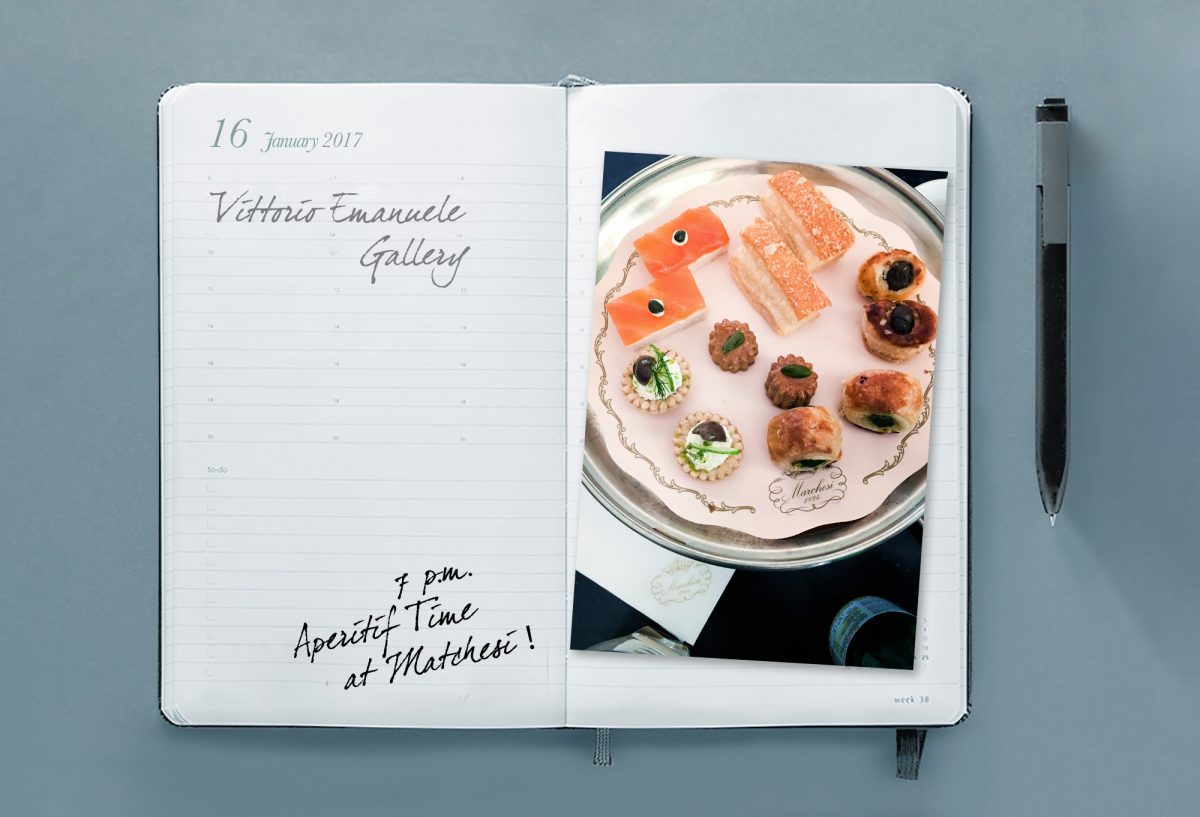 16 January 2017
Vittorio Emanuele
Gallery
to-do
7 p.m.
Aperitif Time
at Matchesi !
Marchesi
1824
Marchesi
1824
week 38